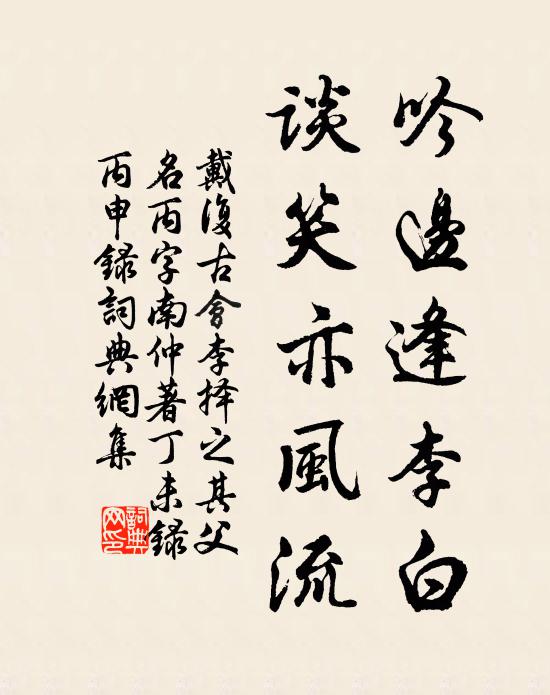 吟邊逢李白
談笑亦風流
戴復古會李择之其父
名丙字南仲著丁未録
丙申録詞典網集
詞典
网印